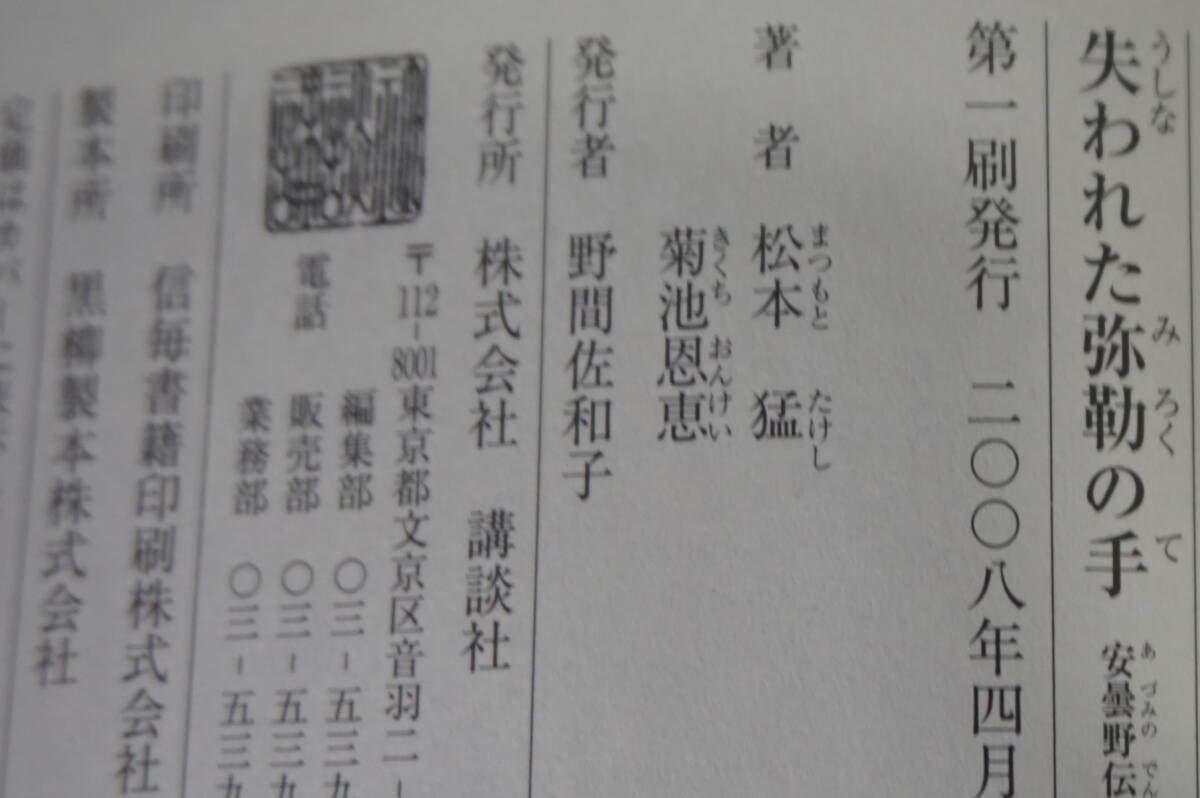 失われた弥勒の手 安曇野伝
うしな みろく て あづみの でん
第一刷発行 二〇〇八年四月
著者 松本 猛
まつもと たけし
菊池恩恵
きくち おんけい
発行者 野間佐和子
発行所 株式会社 講談社
〒112-8001東京都文京区音羽二-
電話 編集部 〇三-五三九
販売部 〇三-五三九
業務部 〇三-五三九
印刷所 信毎書籍印刷株式会社
製本所 黒柳製本株式会社
定価はカバーに表